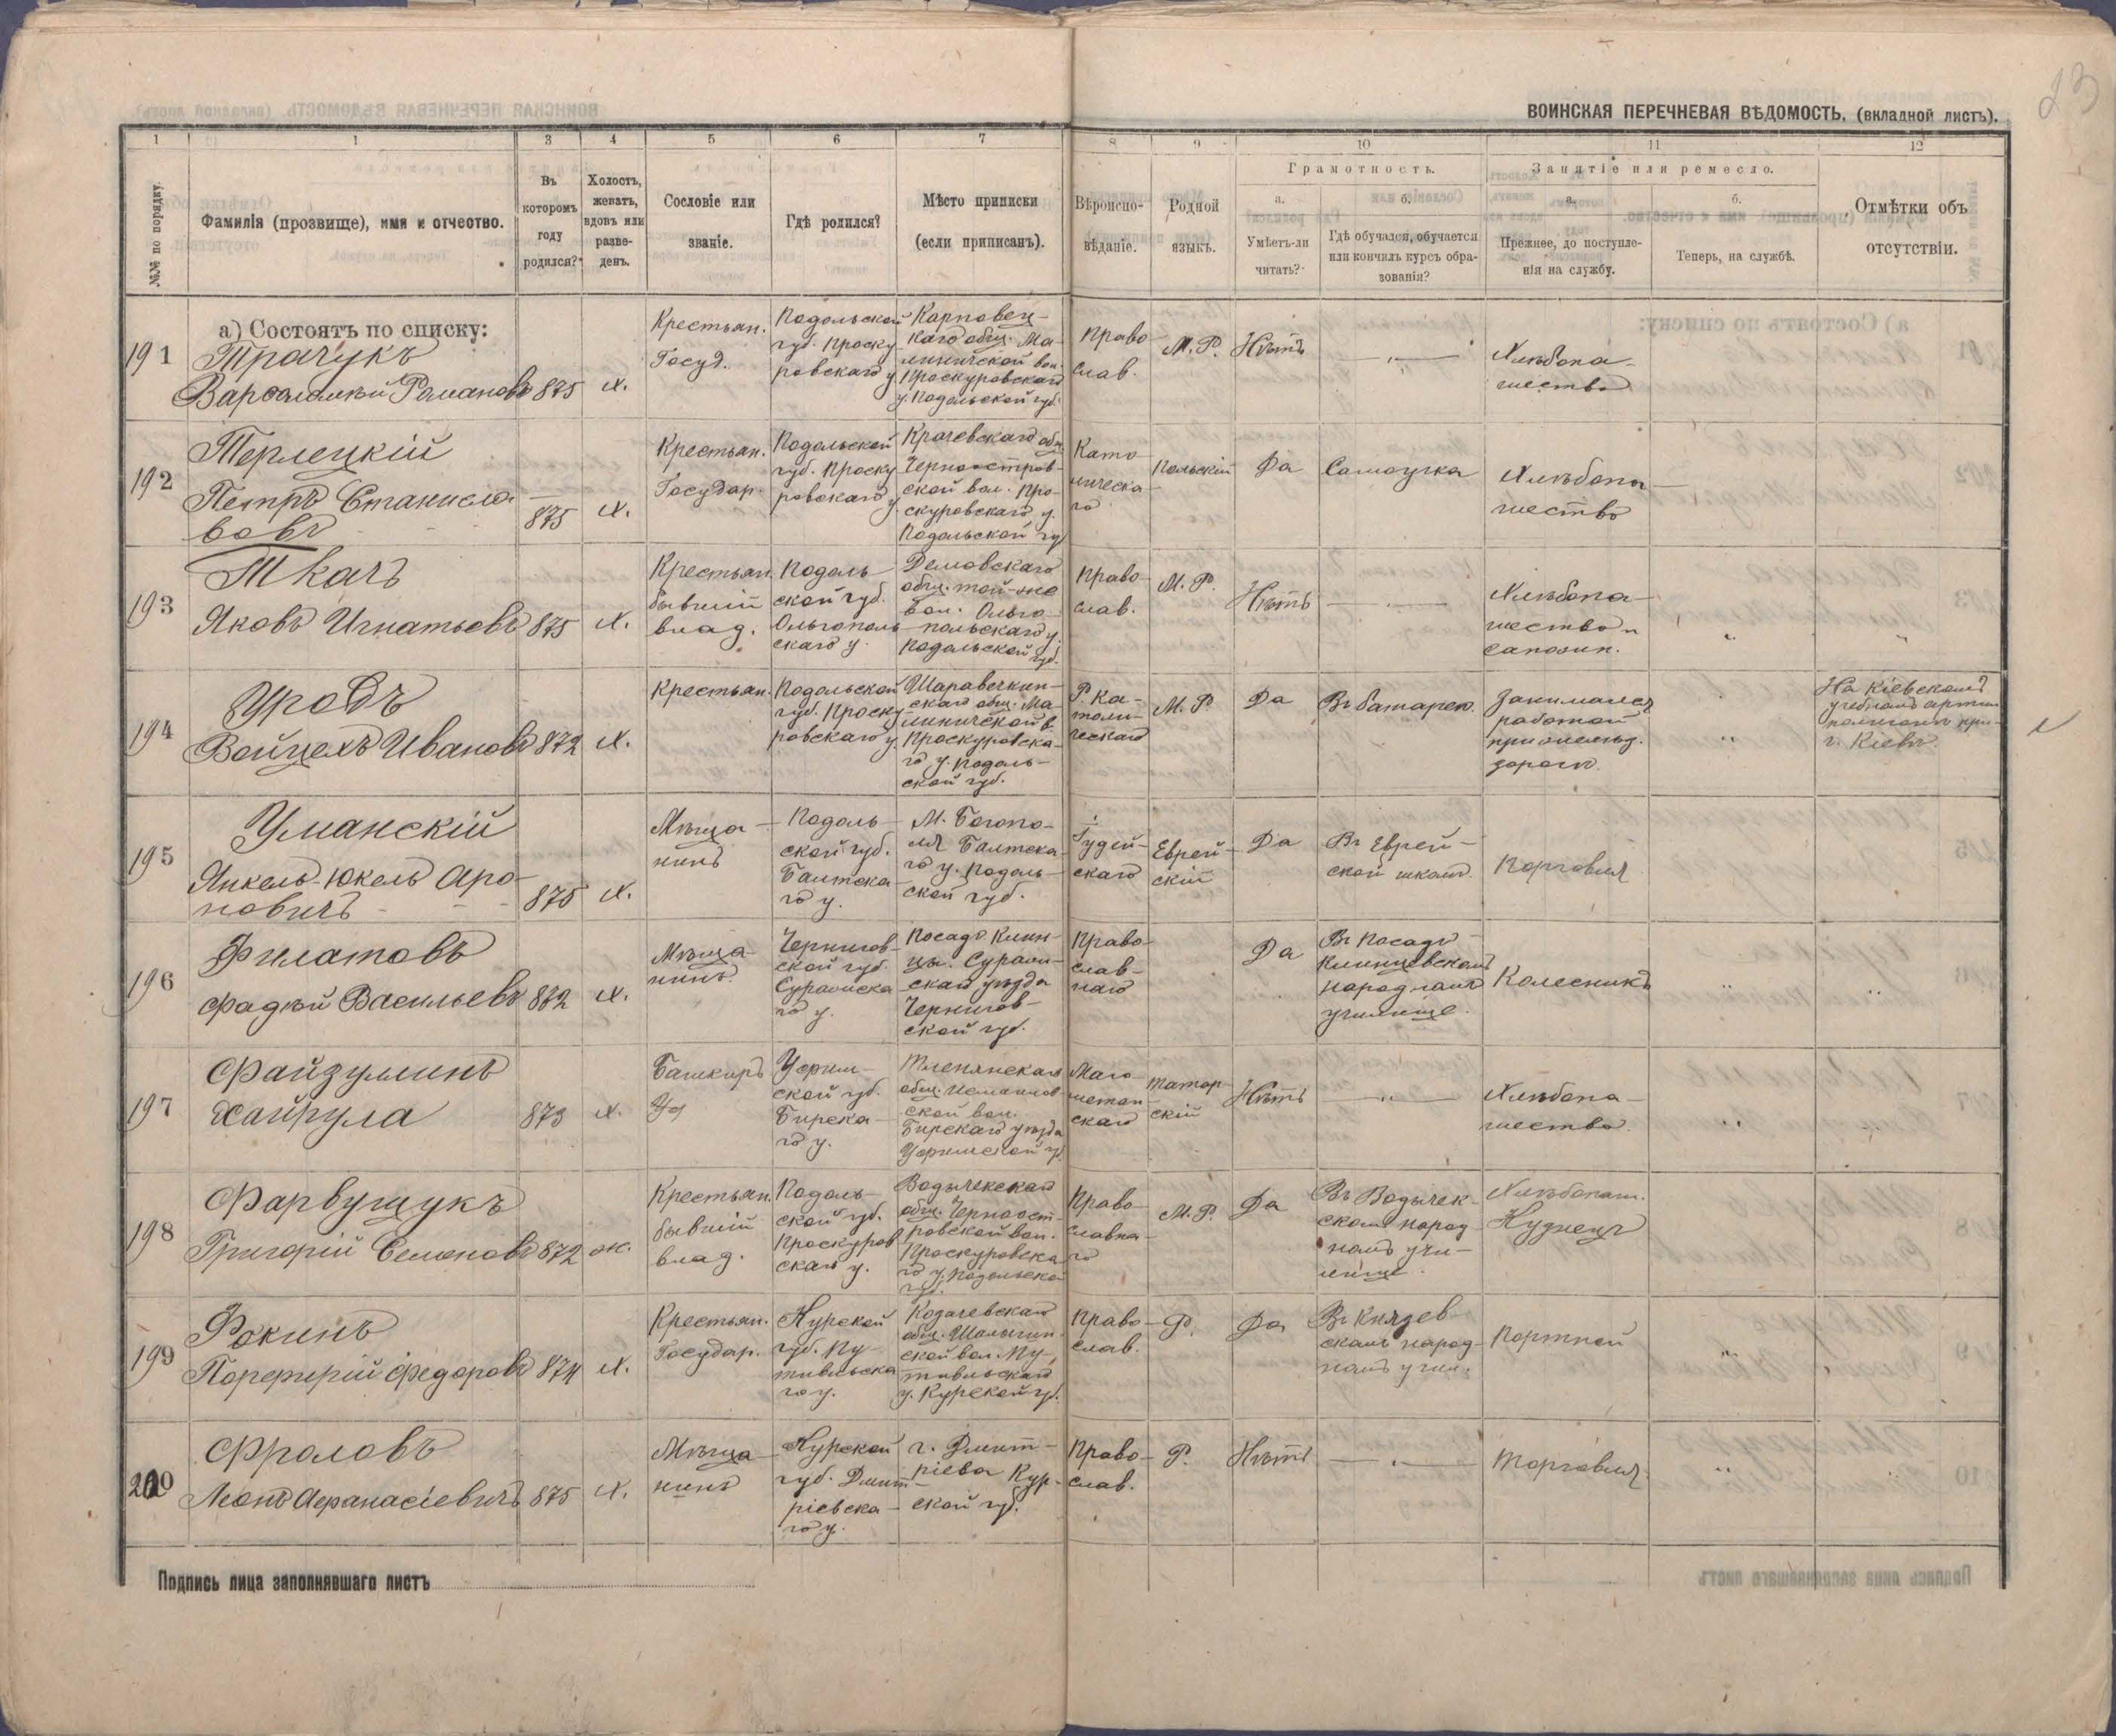 23
ВОИНСКАЯ ПЕРЕЧНЕВАЯ ВѢДОМОСТЬ, (вкладной листъ).
1 1 3 4 5 6 7 8 9 10 11 12
№№ по порядку.
Фамилія (прозвище), имя и отчество.
Въ которомъ году родился?
Холостъ, женатъ, вдовъ или разведенъ.
Сословіе или званіе.
Гдѣ родился?
Мѣсто приписки (если приписанъ).
Вѣроисповѣданіе.
Родной языкъ.
Грамотность.
а. Умѣетъ-ли читать?
б. Гдѣ обучался, обучается или кончилъ курсъ образованія?
Занятіе или ремесло.
а. Прежнее, до поступленія на службу.
б. Теперь, на службѣ.
Отмѣтки объ отсутствіи.
а) Состоятъ по списку:
191
Трачукъ
Варфоломѣй Романовъ
875
х.
Крестьян.
Госуд.
Подольской
губ. Проску
ровскаго у.
Карповец-
каго общ. Ма-
линичской вол.
Проскуровскаго
у. Подольской губ.
Право
слав.
М. Р.
Нѣтъ
— " —
Хлѣбопа-
шество
192
Терлецкій
Петръ Станисла-
вовъ
875
х.
Крестьян.
Государ.
Подольской
губ. Проску
ровскаго у.
Грачевскаго общ.
Черноостров-
ской вол. Про-
скуровскаго у.
Подольской гу
Като
лическа-
го
Польскій
Да
Самоучка
Хлѣбопа-
шество
193
Ткачъ
Яковъ Игнатьевъ
875
х.
Крестьян.
бывшій
влад.
Подоль-
ской губ.
Ольгополь
скаго у.
Демовскаго
общ. той-же
вол. Ольго-
польскаго у.
Подольской губ.
Право-
слав.
М. Р.
Нѣтъ
— . —
Хлѣбопа-
шество и
сапожн.
"
"
194
Уродъ
Войцехъ Ивановъ
872
х.
Крестьян.
Подольской
губ. Проску-
ровскаго у.
Шаравечкин-
скаго общ. Ма-
линичской в.
Проскуровска-
го у. Подоль-
ской губ.
Р. Ка-
толи-
ческаго
М. Р.
Да
Въ батареѣ.
Занимался
работой
при желѣз.
дорогѣ.
"
На Кіевскомъ
учебномъ артил
полигонѣ при
г. Кіевѣ.
195
Уманскій
Янкель-Юкель Аро-
новичъ
875
х.
Мѣща-
нинъ
Подоль-
ской губ.
Балтска-
го у.
М. Богопо-
ля Балтска-
го у. Подоль-
ской губ.
Іудей-
скаго
Еврей-
скій
Да
Въ Еврей-
ской школѣ.
Торговля
196
Филатовъ
Фадѣй Васильевъ
872
х.
Мѣща-
нинъ.
Чернигов-
ской губ.
Суражска
го у.
Посадъ Клин-
цы. Сураж-
скаго уѣзда
Чернигов-
ской губ.
Право-
слав-
наго
Да
Въ Посадѣ
Клинцевскомъ
народномъ
училище.
Колесникъ
"
"
197
Файзулинъ
Хайрула
873
х.
Башкиръ
Уфим-
ской губ.
Бирска-
го у.
общ.
ской вол.
Бирскаго уѣзда
Уфимской гу
Маго
метан-
скаго
Татар-
скій
Нѣтъ
— " —
Хлѣбопа-
шество.
"
"
198
Фарвущукъ
Григорій Семеновъ
872
ж.
Крестьян.
бывшій
влад.
Подоль-
ской губ.
Проскуров
скаго у.
Водычекскаго
общ. Черност-
ровской вол.
Проскуровска
го у. Подольской
губ.
Право-
славна-
го
М. Р.
Да
Въ Водычек-
скомъ народ-
номъ учи-
лище.
Хлѣбопаш.
Кузнецъ
199
Фокинъ
Порфирій Федоровъ
874
х.
Крестьян.
Государ.
Курской
губ. Пу-
тивльска
го у.
Козачевскаго
общ. Шалыгин-
ской вол. Пу-
тивльскаго
у. Курской губ.
Право-
слав.
Р.
Да
Въ Князев
скомъ народ-
номъ учил.
Портной
"
200
Фроловъ
Леонъ Афанасіевичъ
875
х.
Мѣща-
нинъ
Курской
губ. Дмит-
ріевска-
го у.
г. Дмит-
ріева Кур-
ской губ.
Право-
слав.
Р.
Нѣтъ
— " —
Торговля
"
"
Подпись лица заполнявшаго листъ